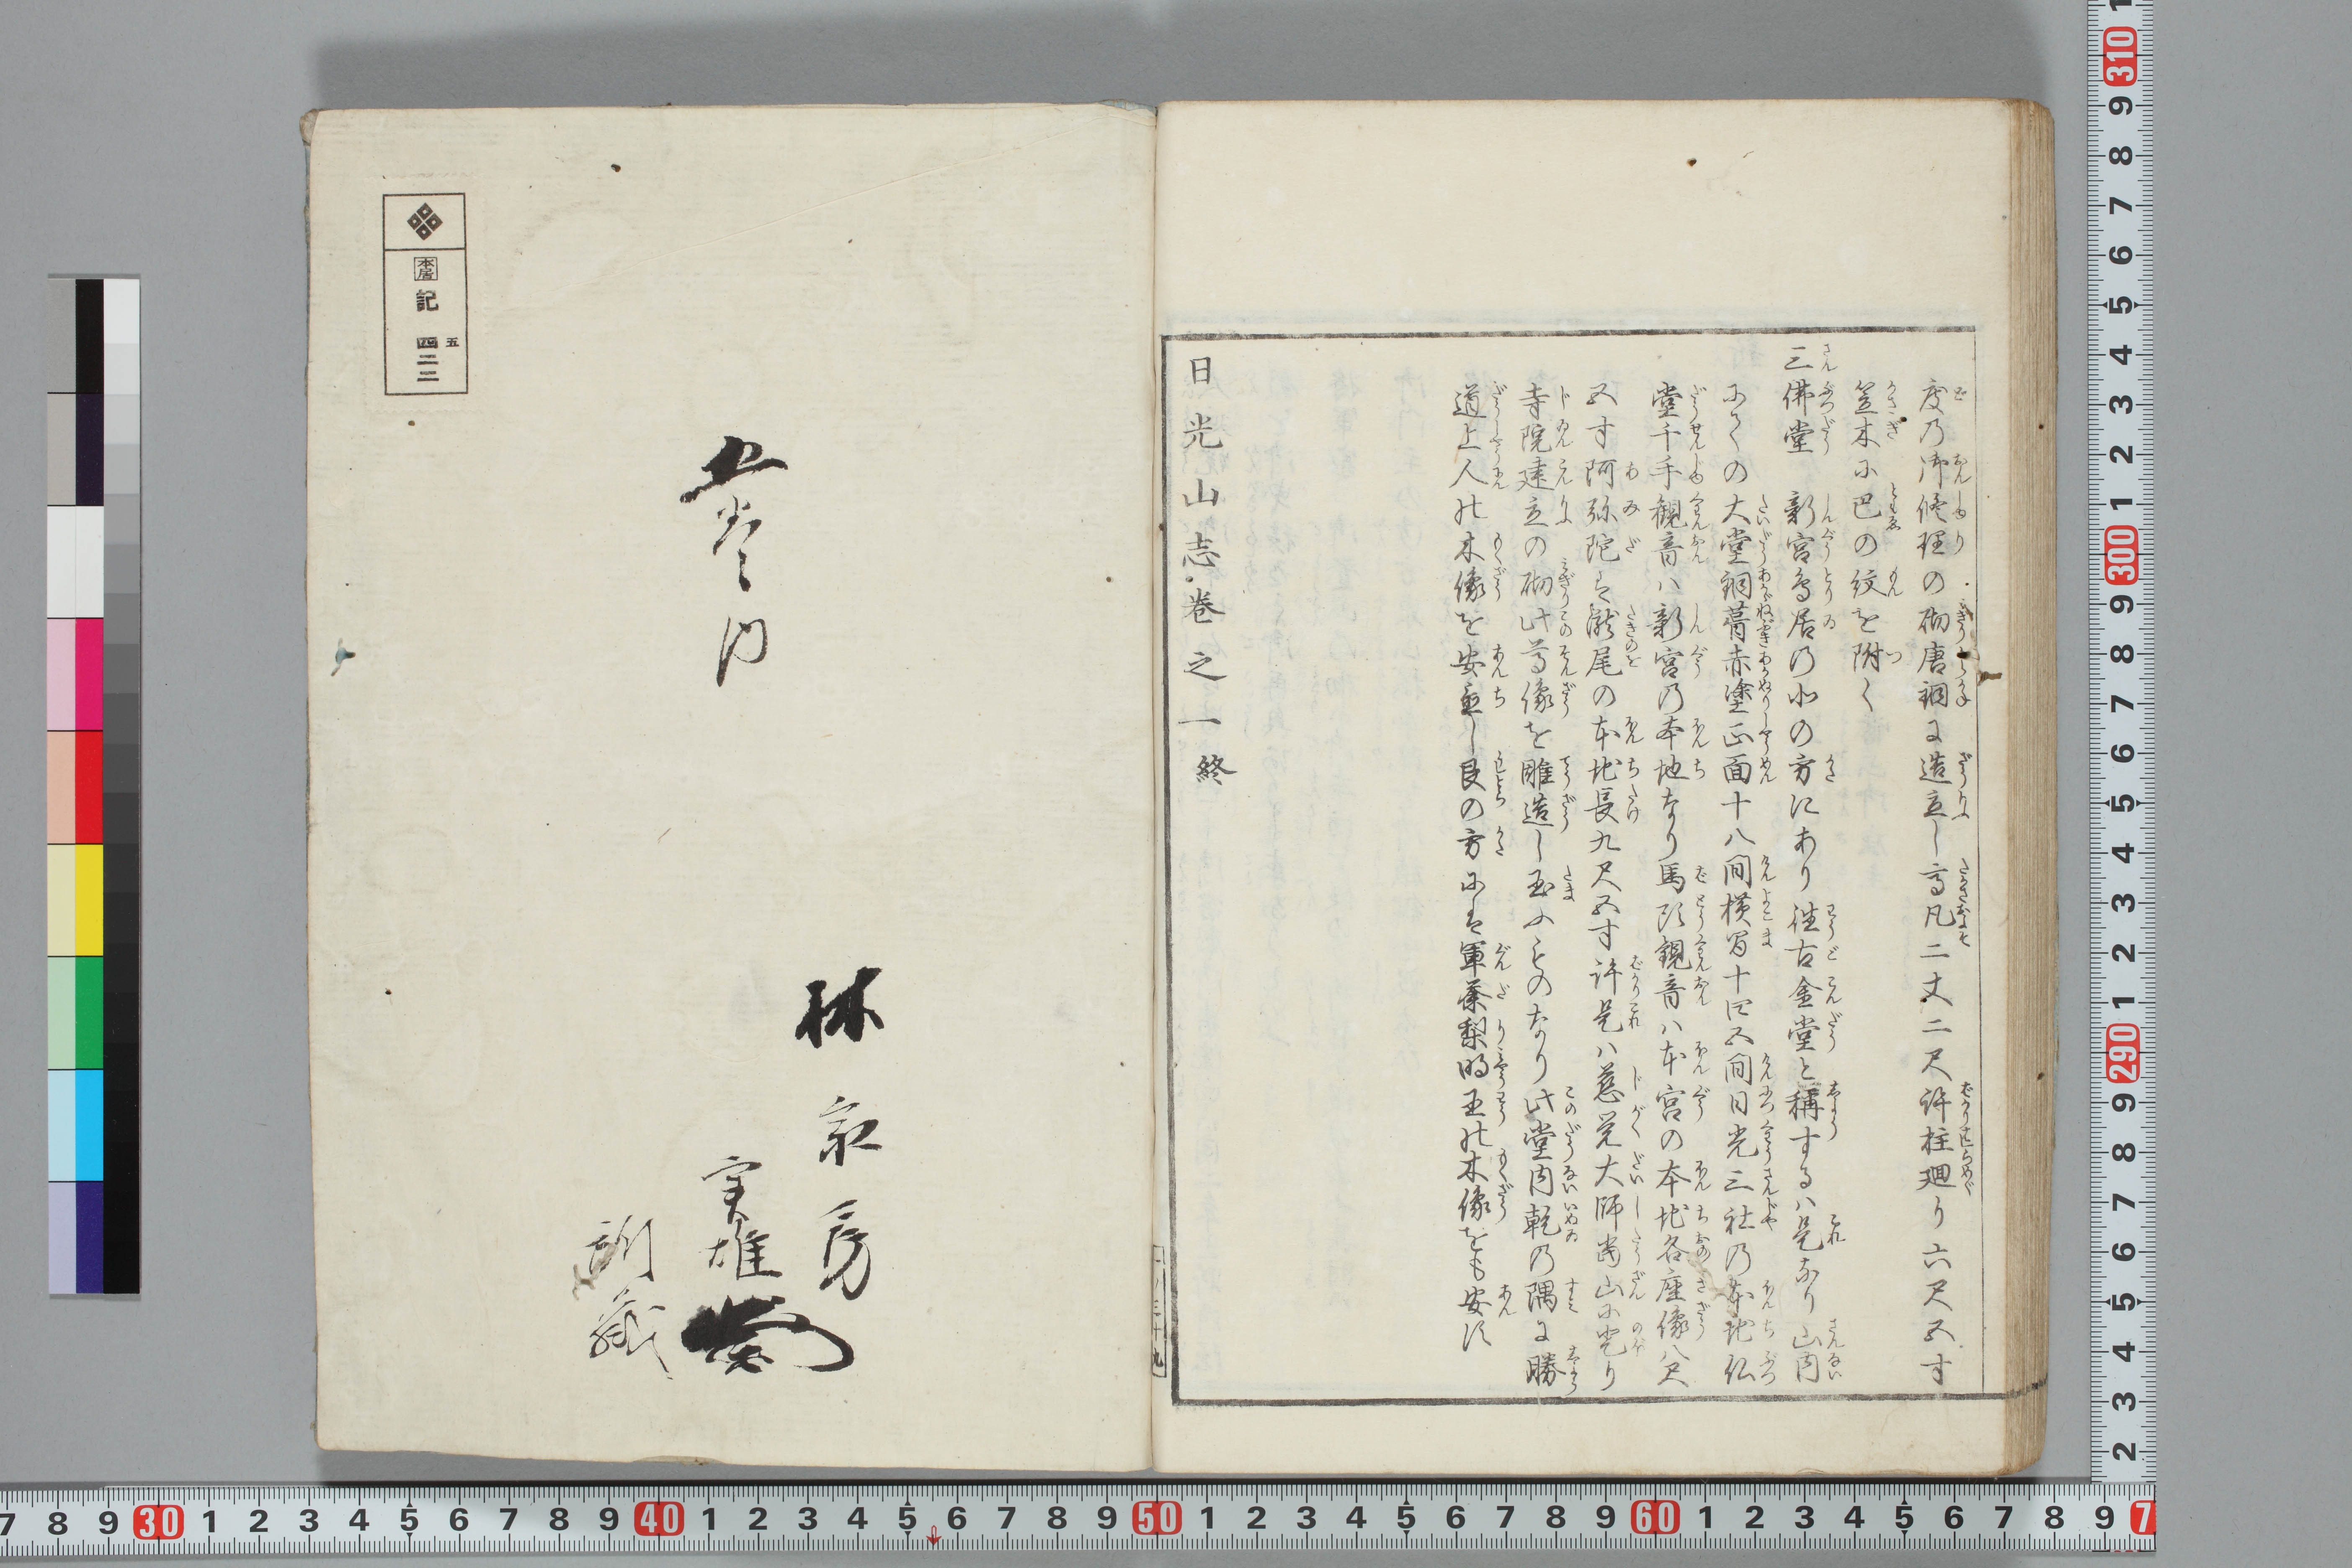 度乃御修理の砌唐銅に造立し高凡二丈二尺許柱廻り六尺五寸
笠木に巴の紋を附く
三佛堂　新宮鳥居乃北の方にあり往古金堂と称するハ是なり山内
の大堂銅葺赤塗正面十八間横間十四五間日光三社乃本地仏
堂千手観音ハ新宮乃本地なり馬頭観音ハ本宮の本地各座像八尺
五寸阿弥陀は瀧尾の本地長九尺五寸許是ハ慈覚大師當山に登り
寺院建立の砌此尊像を雕造し玉ふものなり此堂内乾乃隅に勝
道上人の木像を安置し艮の方には軍荼梨明王の木像をも安須
日光山志巻之一終
一ノ三十九
五巻内
林泉房
実雄
訓蔵
本居
記
五
四二三